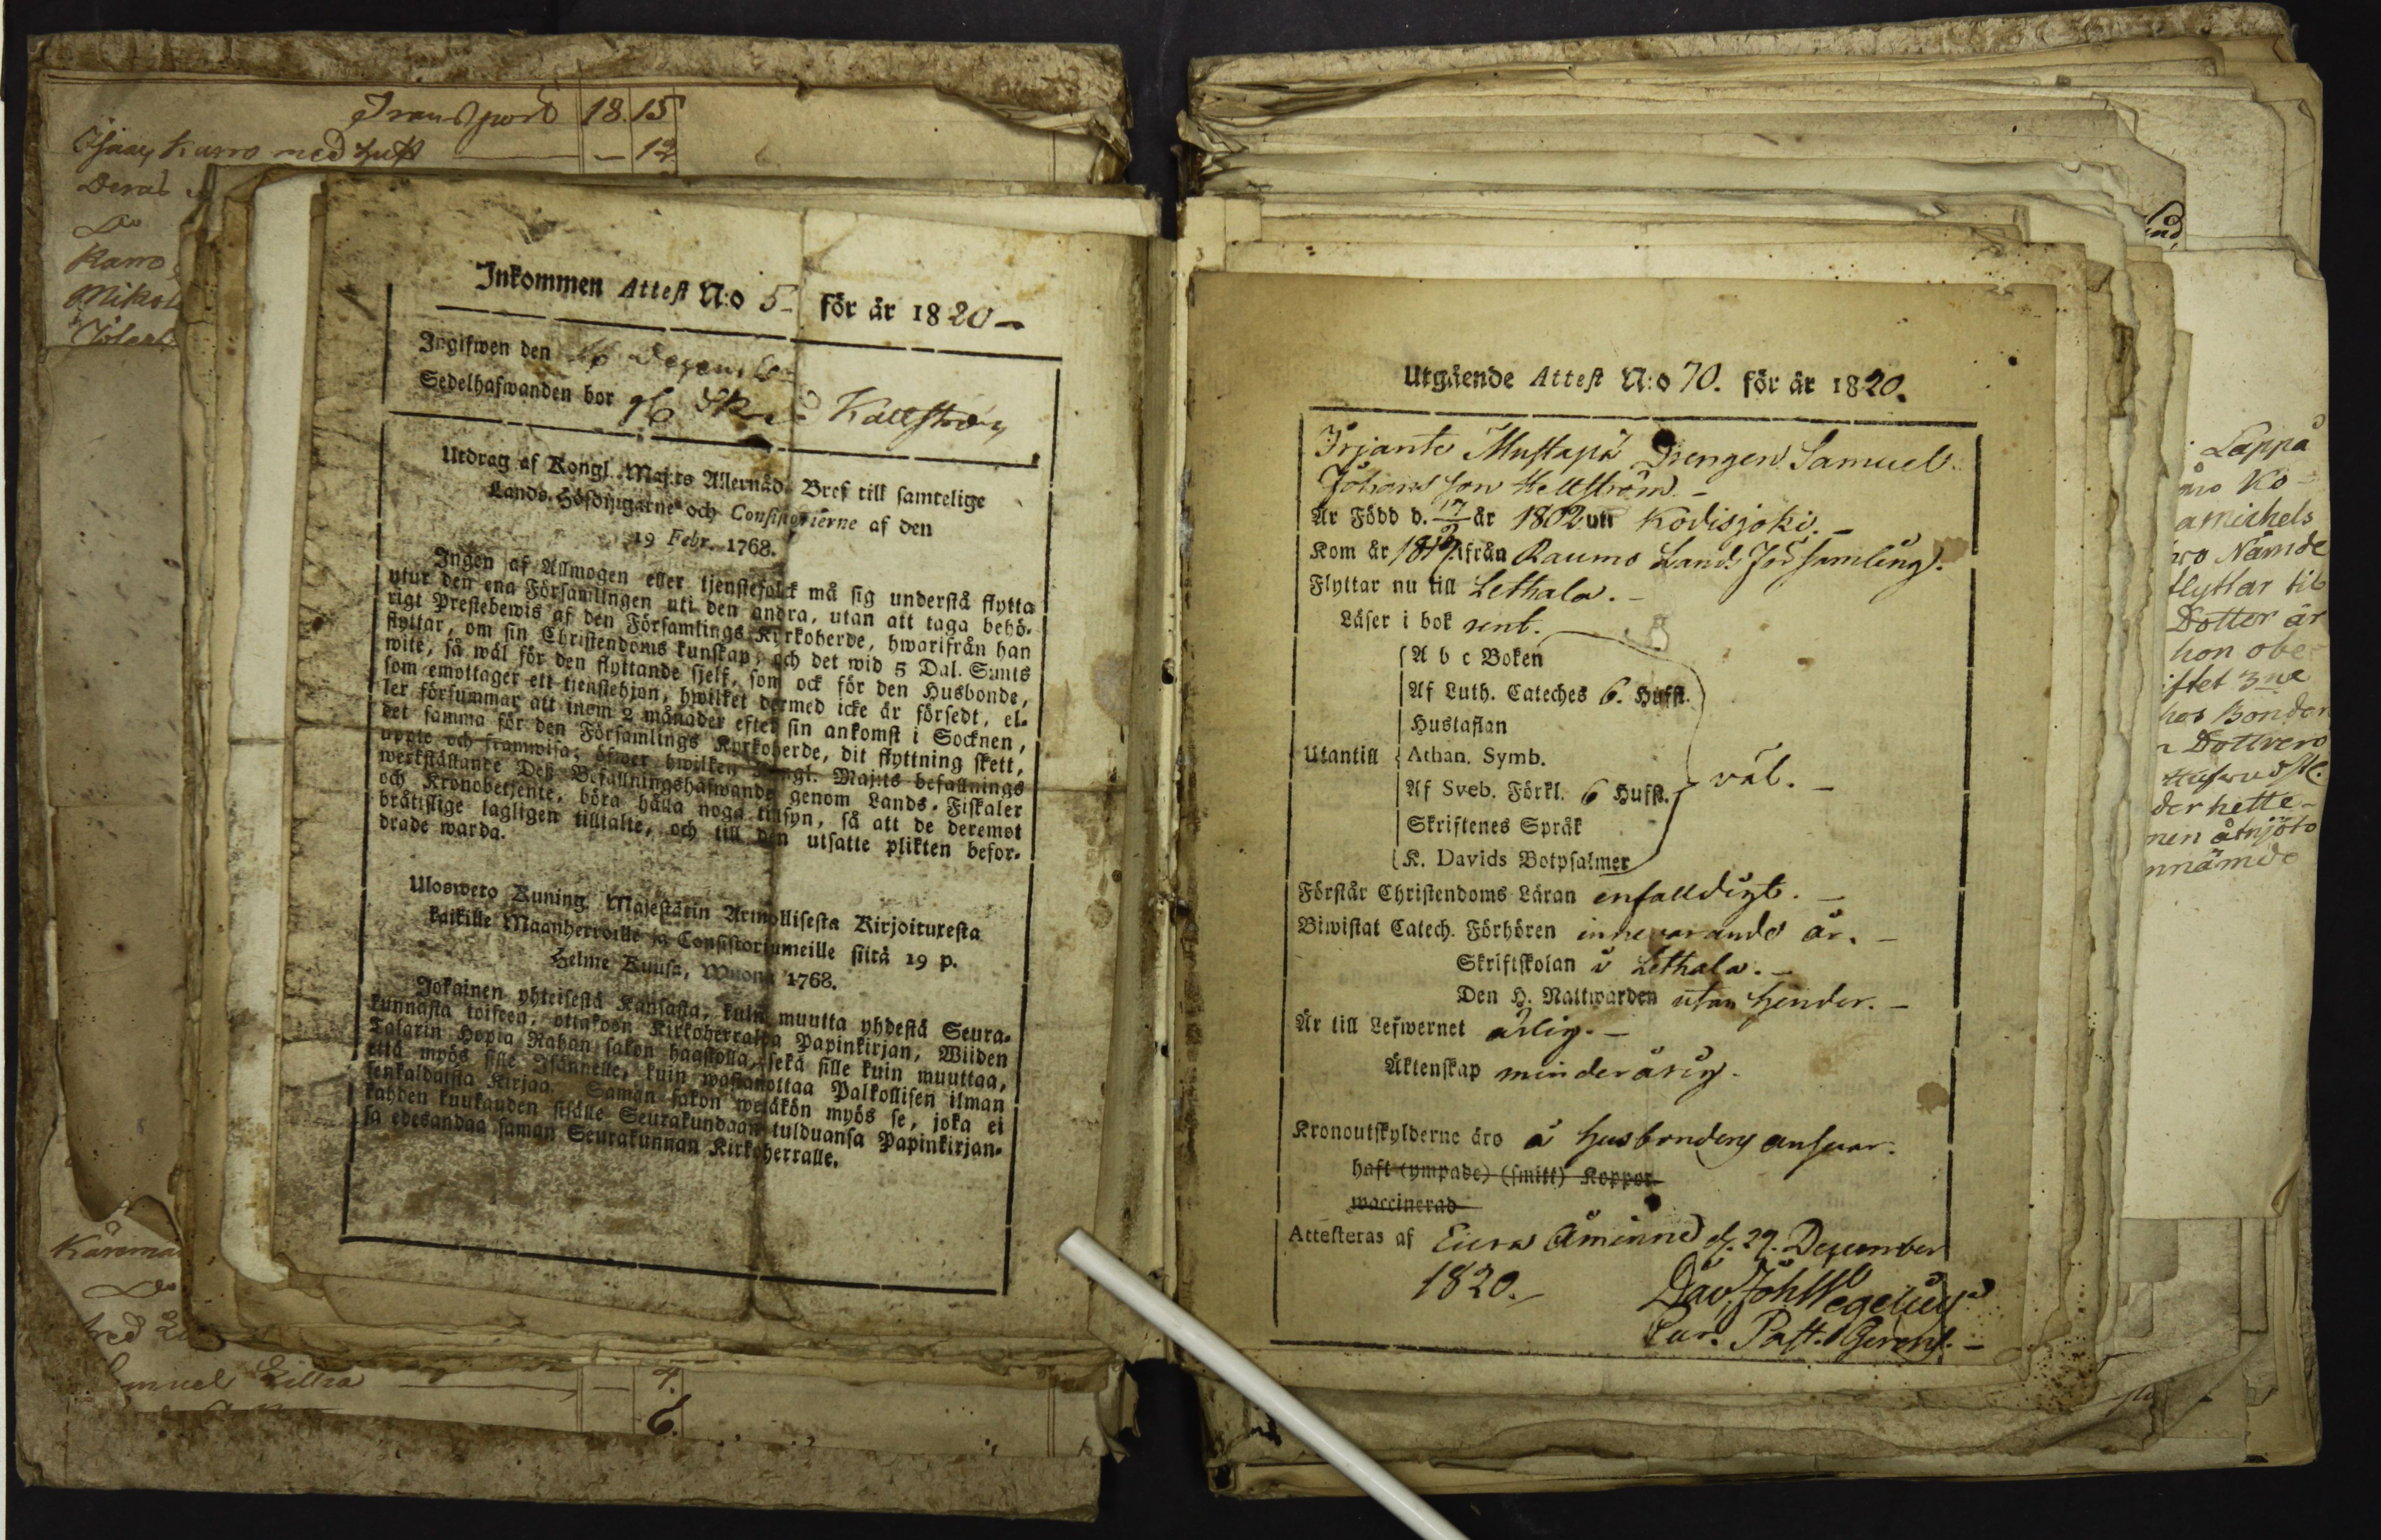 Transport 18. 15
Karro med Hust — 12
Derat
Do
Karro
Inkommen Attest N:o 5 för år 1820
Ingifwen den 16 Decemb
Sedelhafwanden bor Kallström
Utdrag af Kongl. Maj:ts Allernåd. Bref till samtelige
Lands-Höfdingarne och Consistorierne af den
19 Febr. 1768.
Ingen af Allmogen eller tjenstefolck må sig understå flytta
utur den ena Församlingen uti den andra, utan att taga behö-
rigt Prestebewis af den Församlings Kyrkoherde, hwarifrån han
flyttar, om sin Christendoms kunskap, och det wid 5 Dal. Smts
wite, så wäl för den flyttande sjelf, som ock för den Husbonde,
som emottager ett tjenstehjon, hwilket dermed icke är försedt, el-
ler försummar att inom 2 månader efter sin ankomst i Socknen,
det samma för den Församlings Kyrkoherde, dit flyttning skett,
uppte och framwisa; öfwer hwilken Kongl. Maj:ts befallnings
werkställande Deß Befallningshafwande genom Lands-Fiskaler
och Kronobetjente, böra hålla noga tillsyn, så att de deremot
bråtislige lagligen tilltalte, och till den utsatte plikten befor-
drade warda.
Uloswero Kuning. Majestätin Armollisesta Kirjoituxesta
kaikille Maanherroille ja Consistoriumeille siitä 19 p.
Helme Kuusa, Wuonna 1768.
Jokainen yhteisestä Kansasta, kuin muutta yhdestä Seura-
kunnasta toiseen, ottakoon Kirkoherralda Papinkirjan, Wiiden
Talarin Hopia Rahan sakon haastolla, sekä sille kuin muuttaa,
että myös sille Isännelle, kuin wastanottaa Palkollisen ilman
senkaldaista Kirjaa. Saman sakon wetäkön myös se, joka ei
kahden kuukauden sisälle Seurakundaan tulduansa Papinkirjan-
sa edesandaa saman Seurakunnan Kirkoherralle.
Do
Samuel Lilla — 4.
6.
Utgående Attest N:o 70. för år 1820.
Irjante Mustapä Drengen Samuel
Johansson Hellström. –
Är Född d. 17/2 år 1802 uti Kodisjoki. –
Kom år 1819 ifrån Raumo Lands Församling.
Flyttar nu till Lethala. –
Läser i bok rent.
A b c Boken
Af Luth. Cateches 6. Hufst.
Hustaflan
Utantill Athan. Symb.
Af Sveb. Förkl. 6 Hufst. väl. –
Skriftenes Språk
K. Davids Botpsalmer
Förstår Christendoms Läran enfalldigt. –
Biwistat Catech. Förhören innevarande år. –
Skriftskolan i Lethala. –
Den H. Nattwarden utan hinder. –
Är till Lefwernet ärlig. –
Äktenskap minderårig. –
Kronoutskylderne äro å husbondens ansvar.
haft (ympade) (smitt) Koppor
waccinerad
Attesteras af Eura Åminne d. 29. December
1820. Dav. Joh. Wegelius
Past. Gerens. –
Lappå
Ko-
amichels
Nämde
flyttar til
Dotter är
hon obe
iftet 3ne
hos Bonden
Dottren
der hette -
nen åtnjöto
nnämde